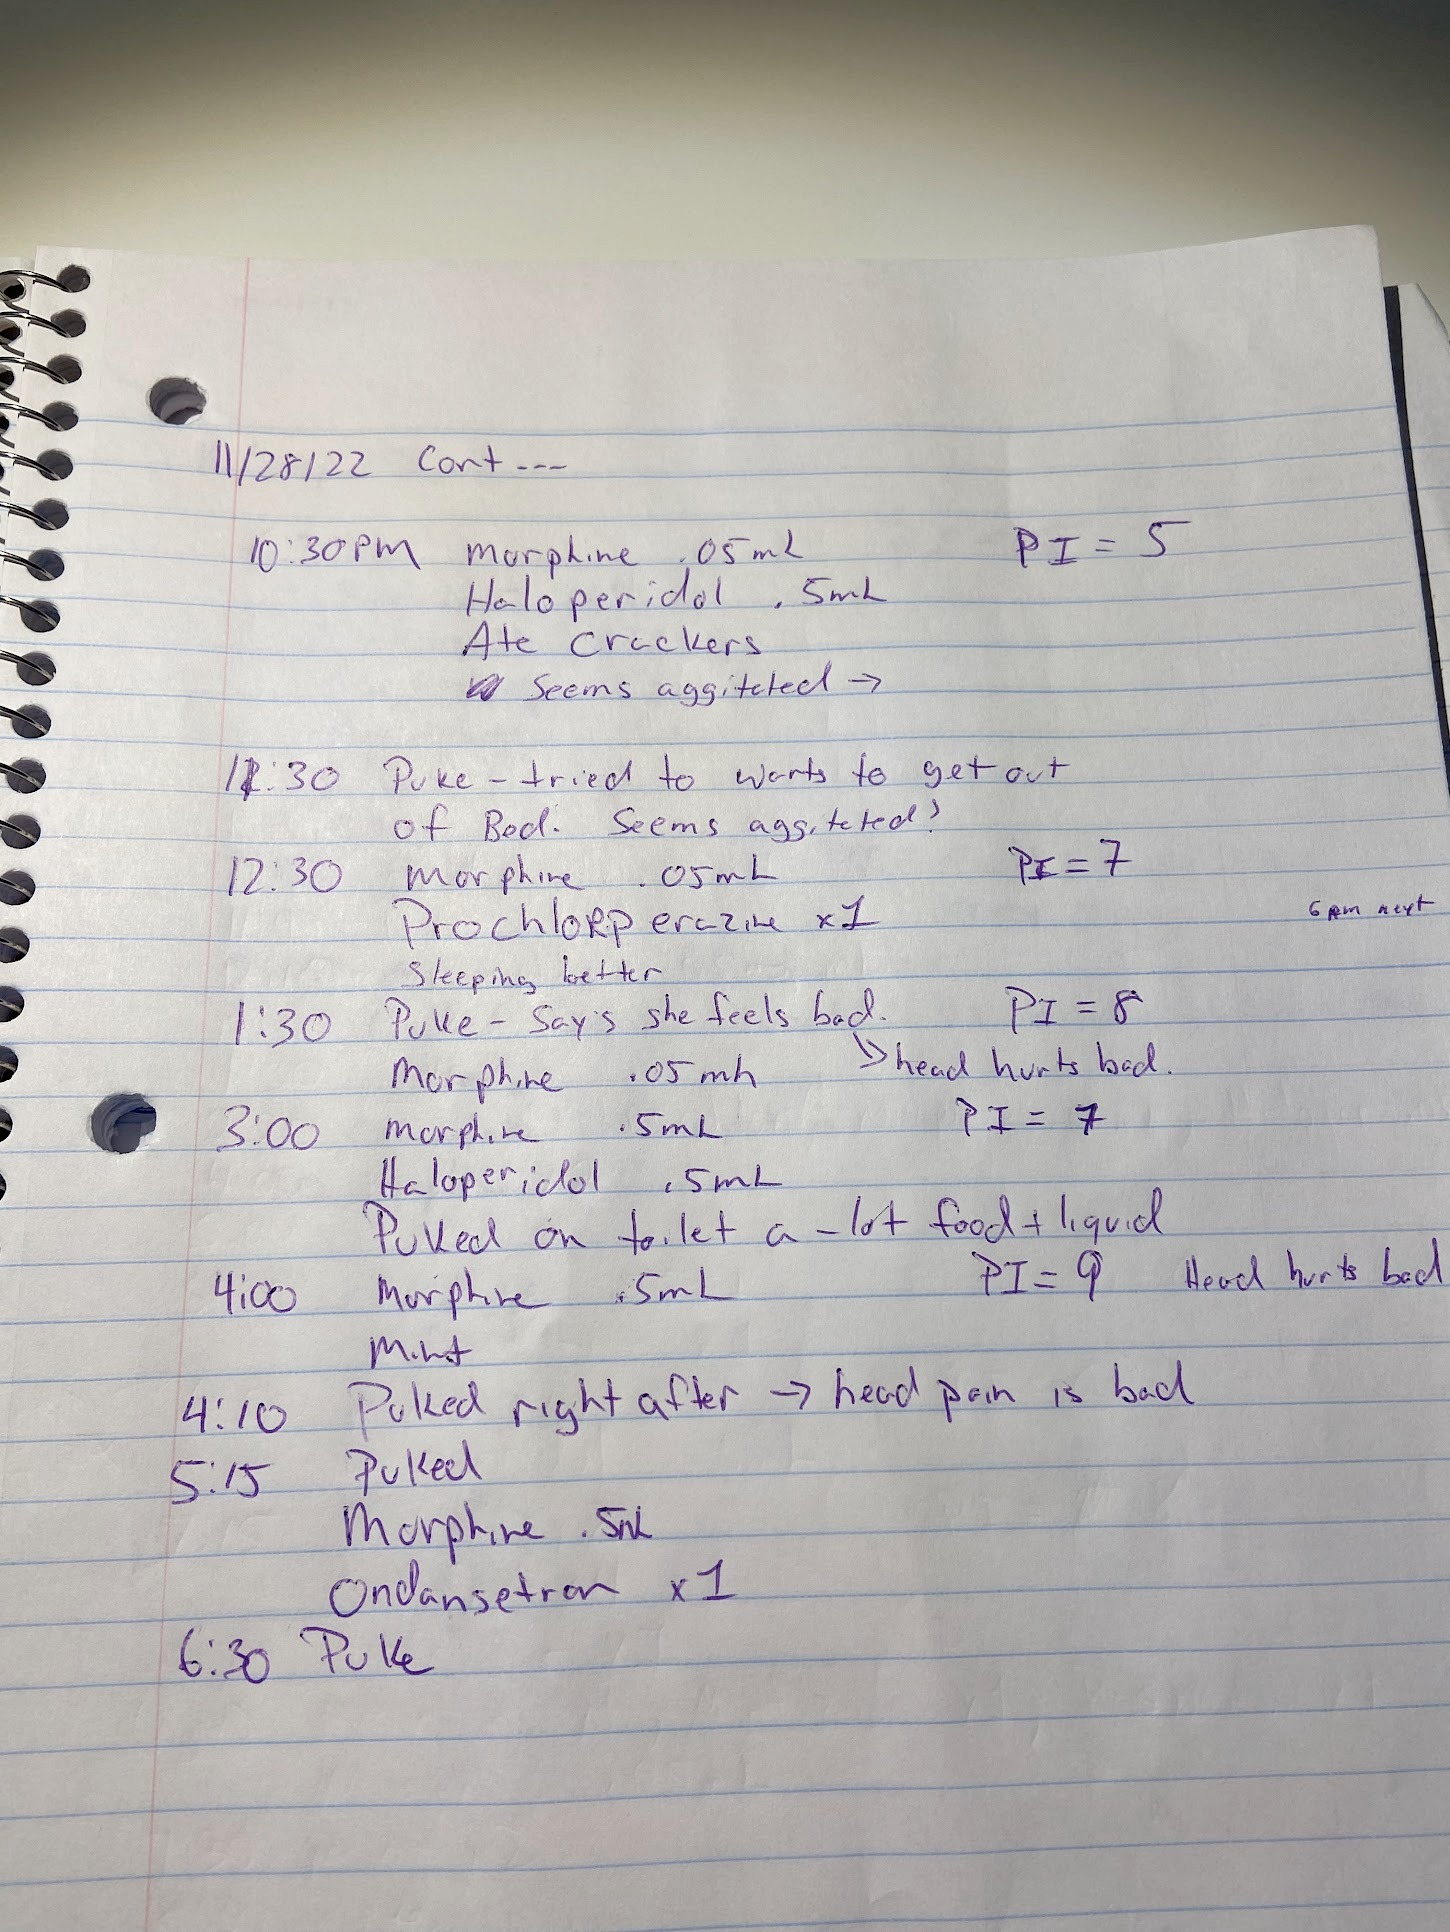 11/28/22 Cont ---
10:30PM morphine .05mL PI = 5
Haloperidol .5mL
Ate Crackers
Seems aggitated →
11:30 Puke - tried to wants to get out
of Bed. Seems aggitated?
12:30 morphine .05mL PI = 7
Prochlorperazine x1 6pm next
Sleeping better
1:30 Puke - Say's she feels bad. PI = 8
Morphine .05mL → head hurts bad.
3:00 morphine .5mL PI = 7
Haloperidol .5mL
Puked on toilet a-lot food + liquid
4:00 Morphine .5mL PI = 9 Head hurts bad
Mint
4:10 Puked right after → head pain is bad
5:15 Puked
Morphine .5mL
Ondansetron x1
6:30 Puke